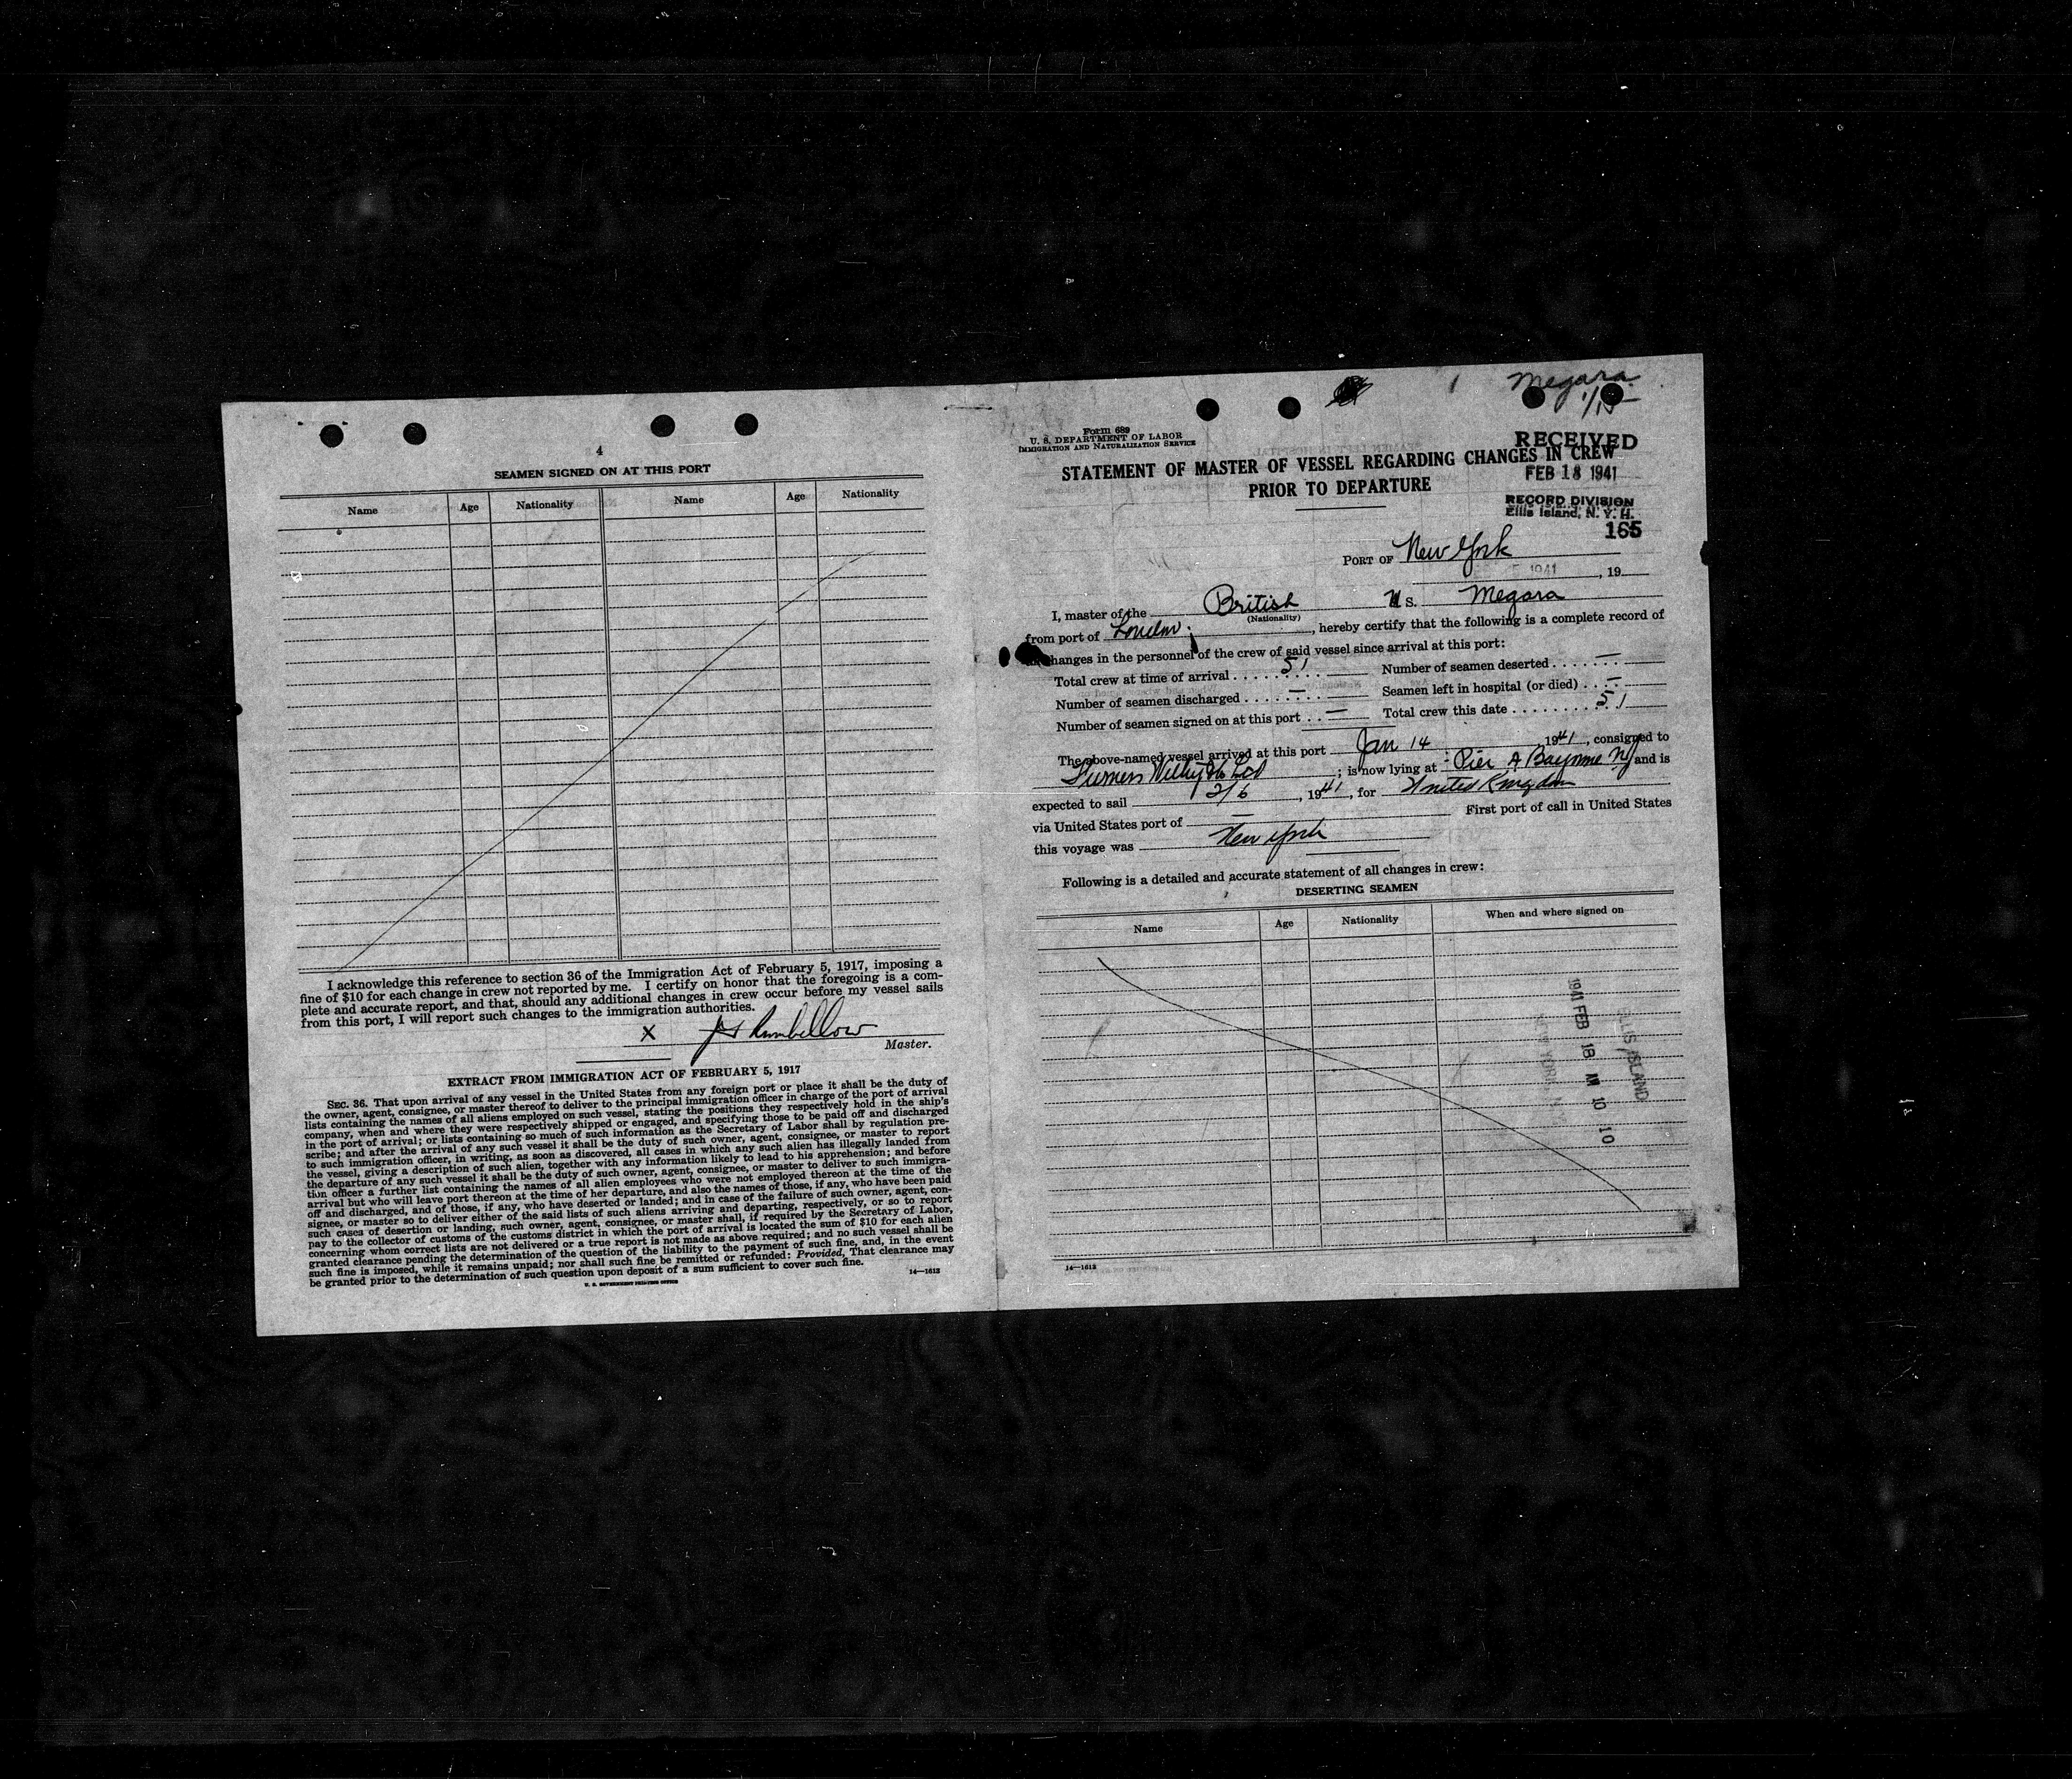 4
SEAMEN SIGNED ON AT THIS PORT
Name Age Nationality Name Age Nationality
I acknowledge this reference to section 36 of the Immigration Act of February 5, 1917, imposing a
fine of $10 for each change in crew not reported by me. I certify on honor that the foregoing is a com-
plete and accurate report, and that, should any additional changes in crew occur before my vessel sails
from this port, I will report such changes to the immigration authorities.
X Rumbellow
Master.
EXTRACT FROM IMMIGRATION ACT OF FEBRUARY 5, 1917
SEC. 36. That upon arrival of any vessel in the United States from any foreign port or place it shall be the duty of
the owner, agent, consignee, or master thereof to deliver to the principal immigration officer in charge of the port of arrival
lists containing the names of all aliens employed on such vessel, stating the positions they respectively hold in the ship's
company, when and where they were respectively shipped or engaged, and specifying those to be paid off and discharged
in the port of arrival; or lists containing so much of such information as the Secretary of Labor shall by regulation pre-
scribe; and after the arrival of any such vessel it shall be the duty of such owner, agent, consignee, or master to report
to such immigration officer, in writing, as soon as discovered, all cases in which any such alien has illegally landed from
the vessel, giving a description of such alien, together with any information likely to lead to his apprehension; and before
the departure of any such vessel it shall be the duty of such owner, agent, consignee, or master to deliver to such immigra-
tion officer a further list containing the names of all alien employees who were not employed thereon at the time of the
arrival but who will leave port thereon at the time of her departure, and also the names of those, if any, who have been paid
off and discharged, and of those, if any, who have deserted or landed; and in case of the failure of such owner, agent, con-
signee, or master so to deliver either of the said lists of such aliens arriving and departing, respectively, or so to report
such cases of desertion or landing, such owner, agent, consignee, or master shall, if required by the Secretary of Labor,
pay to the collector of customs of the customs district in which the port of arrival is located the sum of $10 for each alien
concerning whom correct lists are not delivered or a true report is not made as above required; and no such vessel shall be
granted clearance pending the determination of the question of the liability to the payment of such fine, and, in the event
such fine is imposed, while it remains unpaid; nor shall such fine be remitted or refunded: Provided, That clearance may
be granted prior to the determination of such question upon deposit of a sum sufficient to cover such fine.
U. S. GOVERNMENT PRINTING OFFICE 14—1613
1 Megara
1/15
Form 689
U. S. DEPARTMENT OF LABOR
IMMIGRATION AND NATURALIZATION SERVICE
RECEIVED
STATEMENT OF MASTER OF VESSEL REGARDING CHANGES IN CREW
FEB 18 1941
PRIOR TO DEPARTURE
RECORD DIVISION
Ellis Island, N. Y. H.
165
PORT OF New York
1941, 19
I, master of the British S. Megara
(Nationality)
from port of London, hereby certify that the following is a complete record of
changes in the personnel of the crew of said vessel since arrival at this port:
Total crew at time of arrival 51 Number of seamen deserted —
Number of seamen discharged — Seamen left in hospital (or died) —
Number of seamen signed on at this port — Total crew this date 51
The above-named vessel arrived at this port Jan 14 1941, consigned to
Furness Withy Ltd; is now lying at Pier A Bayonne NJ and is
expected to sail 2/6, 1941, for United Kingdom
via United States port of — First port of call in United States
this voyage was New York
Following is a detailed and accurate statement of all changes in crew:
DESERTING SEAMEN
Name Age Nationality When and where signed on
1941 FEB 18 AM 10 10
ELLIS ISLAND
14—1613